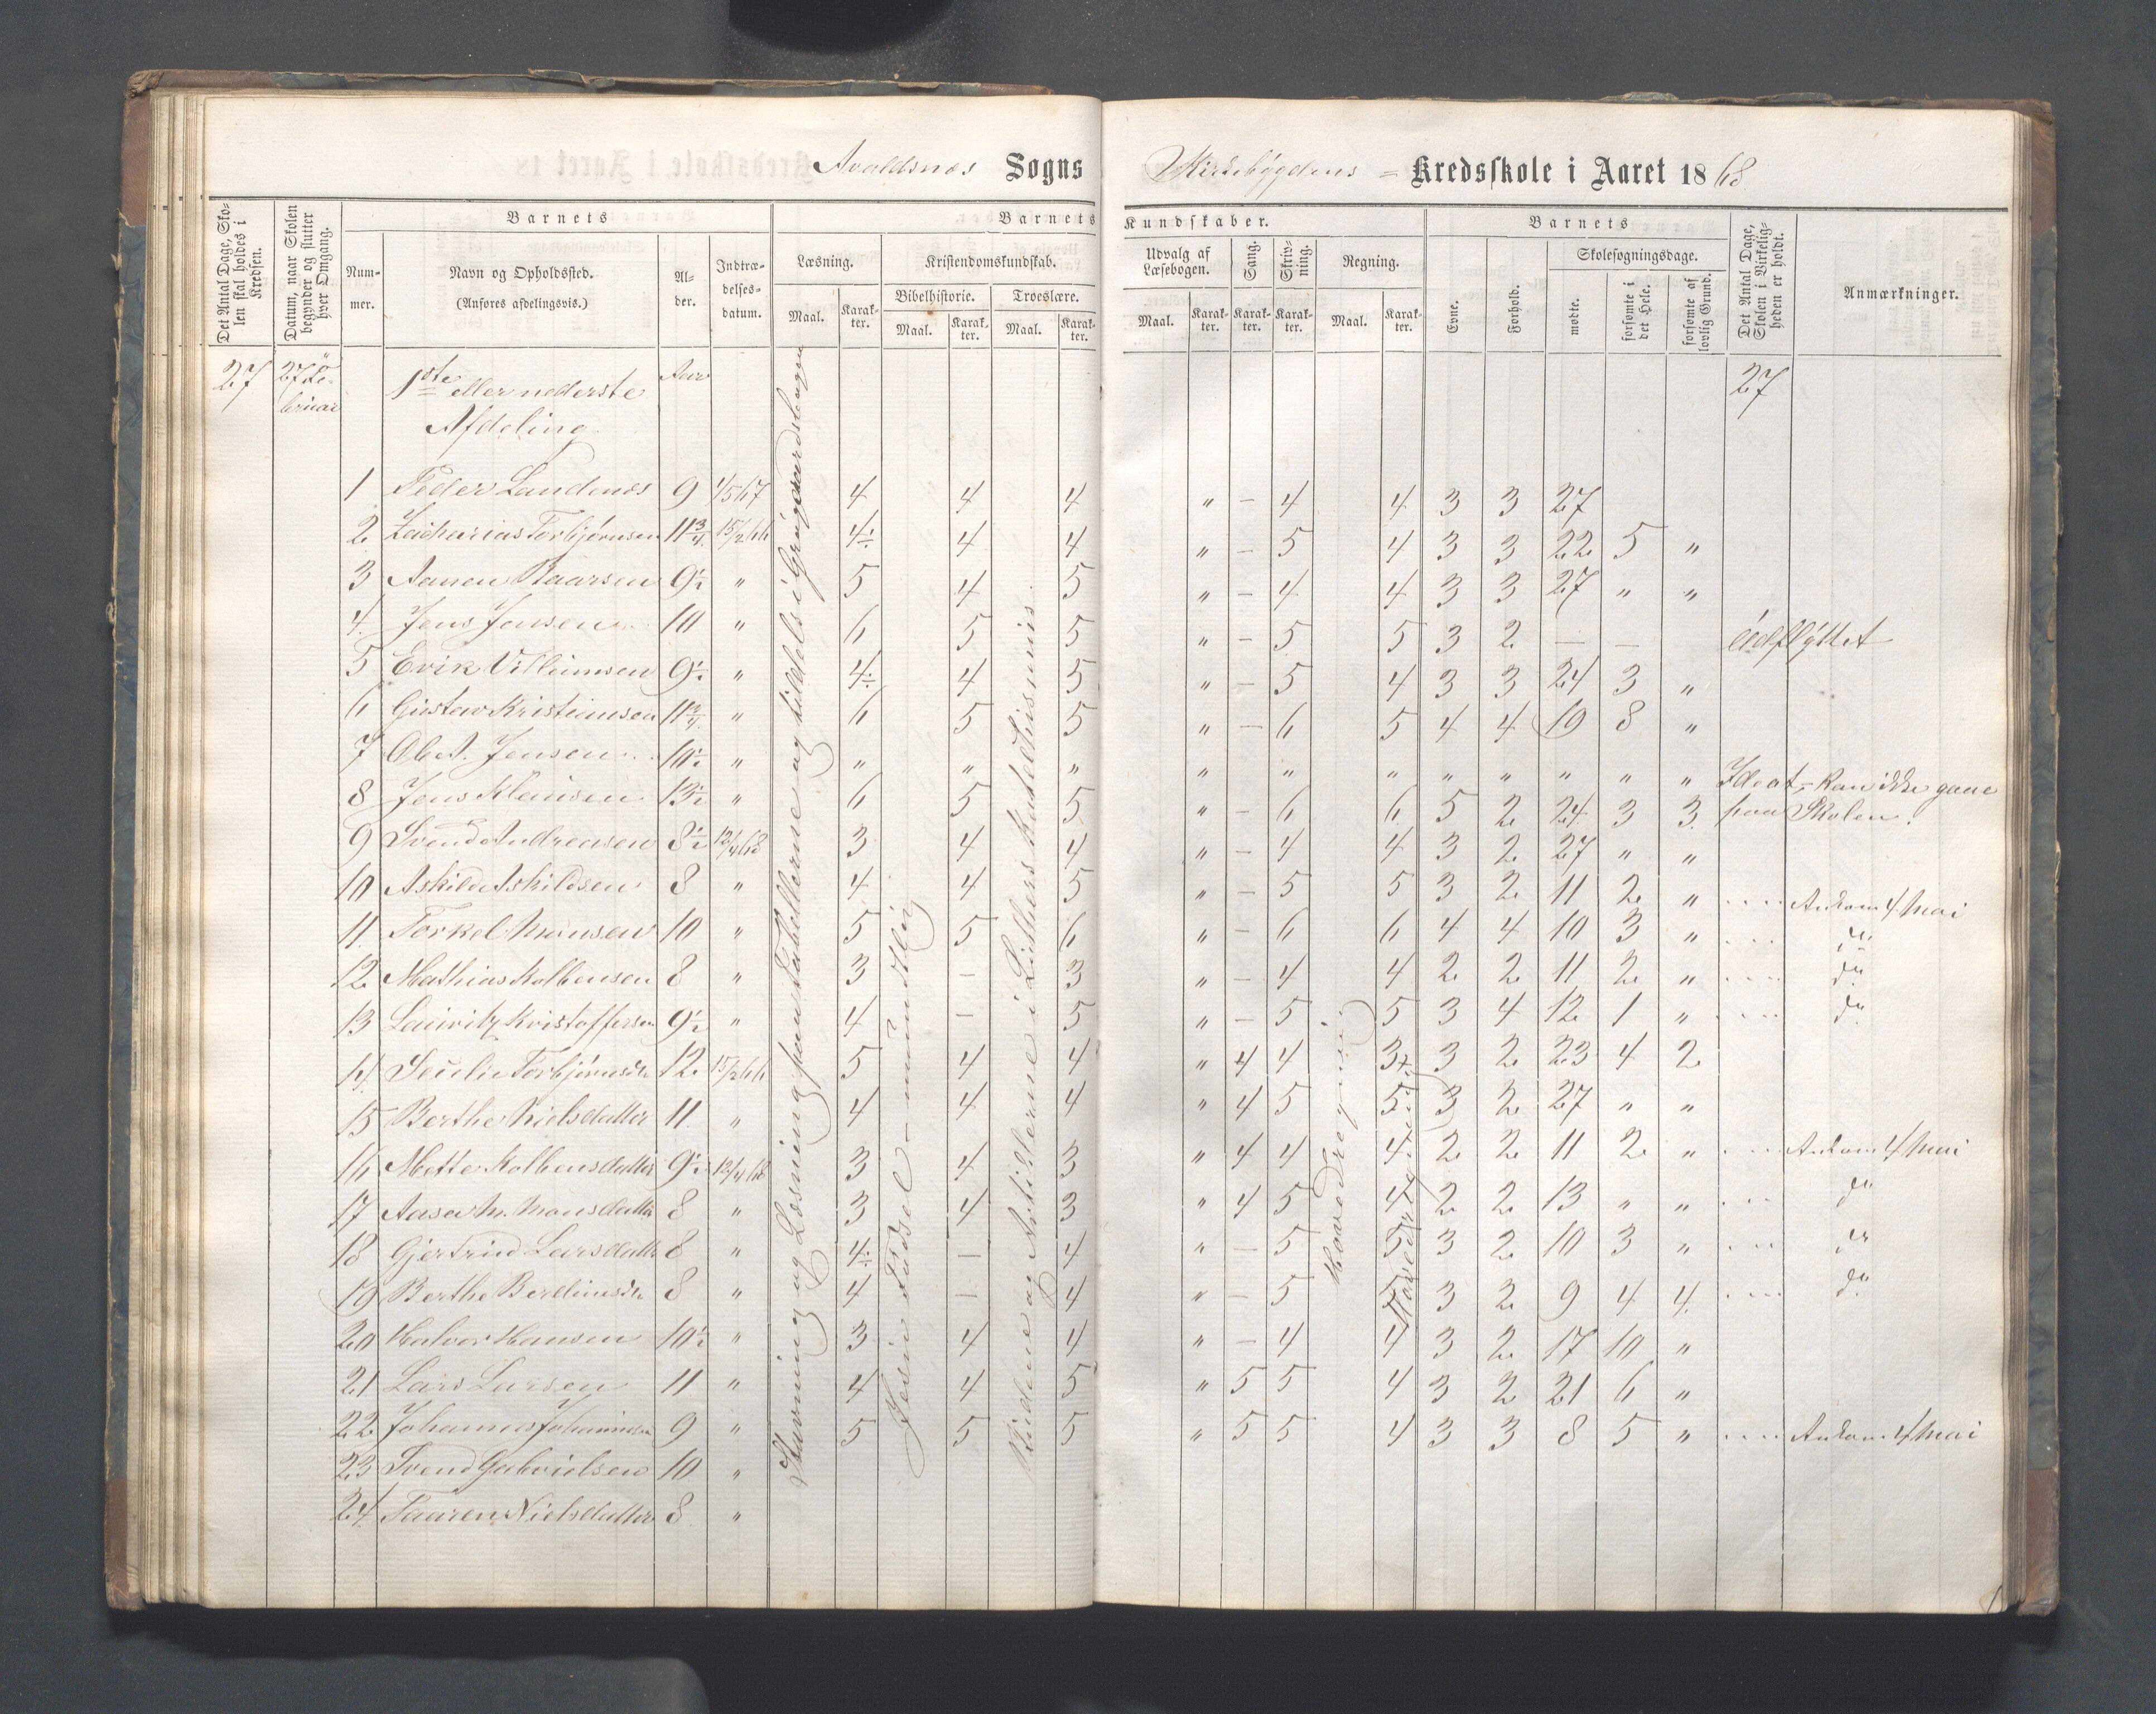 Avaldsnes Sogns Kirkebygdens = Kredsskole i Aaret 1868
Det Antal Dage, Skolen skal holdes i Kredsen.
Datum, naar Skolen begynder og slutter hver Omgang.
Nummer.
Barnets
Navn og Opholdssted.
(Anføres afdelingsvis.)
Alder.
Indtrædelsesdatum.
Barnets Kundskaber.
Læsning.
Maal. Karakter.
Kristendomskundskab.
Bibelhistorie. Troeslære.
Maal. Karakter. Maal. Karakter.
Udvalg af Læsebogen.
Maal. Karakter.
Sang. Karakter.
Skrivning. Karakter.
Regning.
Maal. Karakter.
Barnets
Evne. Forhold.
Skolesøgningsdage.
mødte. forsømte i det Hele. forsømte af lovlig Grund.
Det Antal Dage, Skolen i Virkeligheden er holdt.
Anmærkninger.
27 27de Februar 1ste eller nederste Aar 27
Afdeling
1 Peder Landenes 9 4 4 4 " – 4 4 3 3 27
2 Zacharias Torbjørnsen 11 3/4 15/2 66 4÷ 4 4 " – 5 4 3 3 22 5 "
3 Aanen Baarsen 9½ " 5 4 5 " – 4 4 3 3 27 " "
4 Jens Jensen 10 " 6 5 5 " – 5 5 3 2 – – Udflyttet
5 Erik Villumsen 9½ " 4÷ 4 5 " – 5 4 3 3 24 3 "
6 Gustav Kristiansen 11 3/4 " 6 5 5 " – 6 5 4 4 19 8 "
7 Jensen 10½ " " " " " " " " " " " " Ideot, – kan ikke gaae
8 Jens Klausen 13½ " 6 5 5 " – 6 6 5 2 24 3 3 paa Skolen.
9 Svend Andreasen 8½ 13/4 68 3 4 4 " – 4 4 3 2 27 " "
10 Askild Askildsen 8 " 4 4 5 " – 5 5 3 2 11 2 " .... Ankom 4 Mai
11 Torkel Monsen 10 " 5 5 6 " – 6 6 4 4 10 3 " ... do
12 Mathias Kolbensen 8 " 3 – 3 " – 4 4 2 2 11 2 " .... do
13 Lauritz Kristoffersen 9½ " 4 – 5 " – 5 5 3 4 12 1 " .... do
14 Torbjørnsdtr 12 15/2 66 5 4 4 " 4 4 3+ 3 2 23 4 2
15 Berthe Nielsdatter 11 " 4 4 4 " 4 5 5 3 2 27 " "
16 Mette Kolbensdatter 9½ 13/4 68 3 4 3 " 4 4 4 2 2 11 2 " .... Ankom 4 Mai
17 Aasa M. Monsdatter 8 " 3 4 3 " 4 5 4 2 2 13 " " ... do
18 Gjertrud Larsdatter 8 " 4÷ – 4 " – 5 5 3 2 10 3 " ... do
19 Berthe 8 " 4 – 4 " – 5 5 3 2 9 4 4 .... do
20 Halvor Hansen 10½ " 3 4 4 " – 4 4 3 2 17 10 "
21 Lars Larsen 11 " 4 4 5 " 5 5 4 3 2 21 6 "
22 Johannes Johannesen 9 " 5 5 5 " 5 5 4 3 3 8 5 " .... Ankom 4 Mai
23 Svend Gabrielsen 10 "
24 Taaren Nielsdatter 8 "
Stavning og Læsning paa Tabellerne og tildels i
Jesu Fødsel – mundtlig
Budene og Artiklerne i Luthers Katechismus.
Hovedregning
Hovedregning